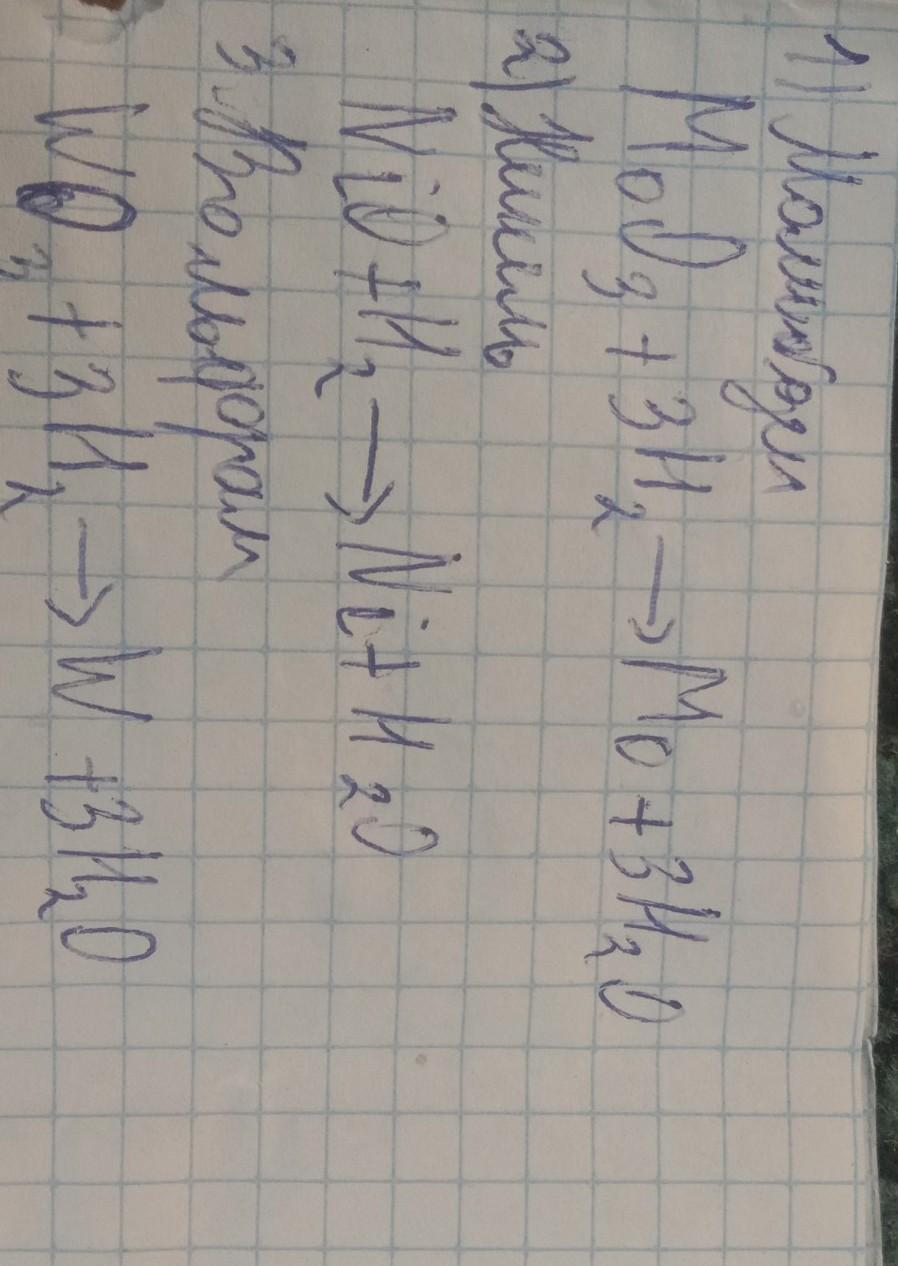 1) Молибден
MoO₃ + 3H₂ → Mo + 3H₂O
2) Никель
NiO + H₂ → Ni + H₂O
3. Вольфрам
WO₃ + 3H₂ → W + 3H₂O